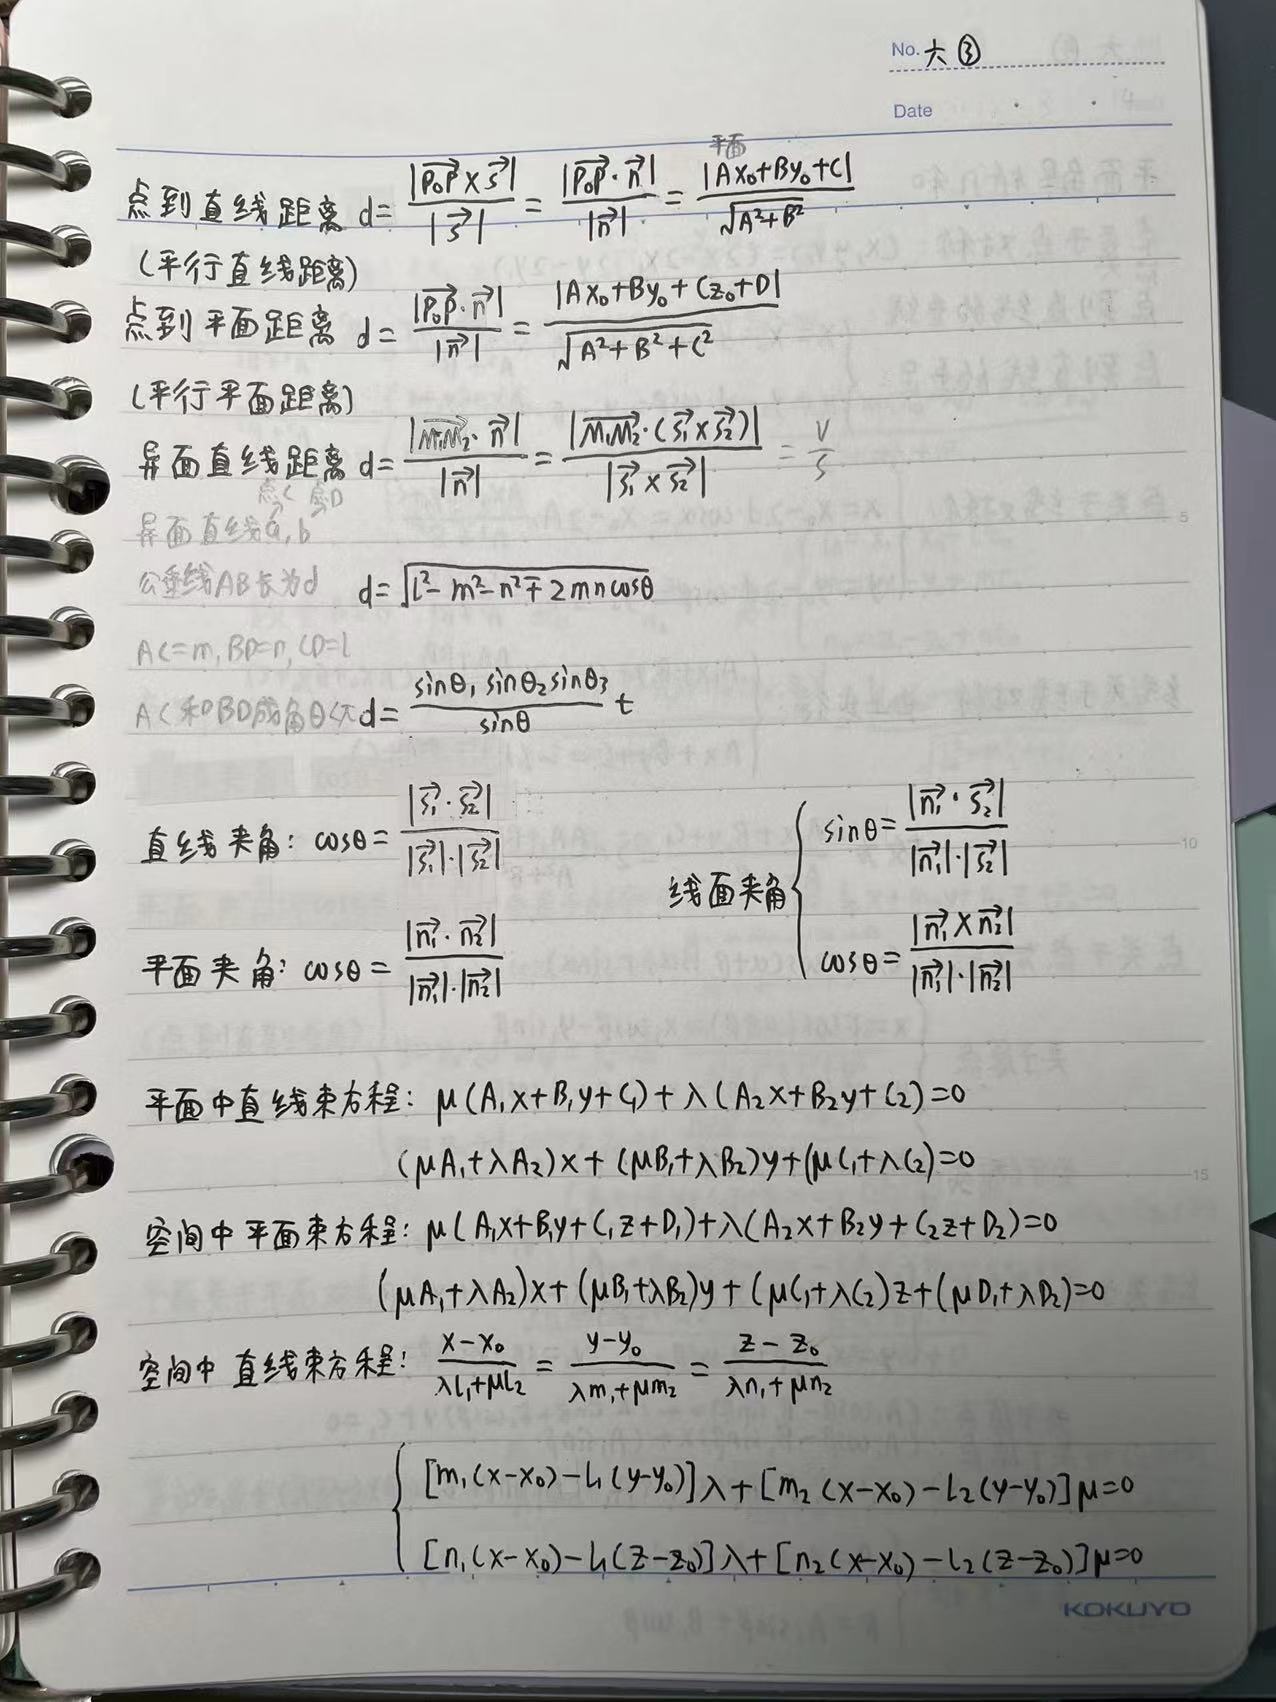 No. 六 ③
Date
平面
点到直线距离 d = |P₀P⃗ × s⃗| / |s⃗| = |P₀P⃗ · n⃗| / |n⃗| = |Ax₀+By₀+C| / √(A²+B²)
(平行直线距离)
点到平面距离 d = |P₀P⃗ · n⃗| / |n⃗| = |Ax₀+By₀+Cz₀+D| / √(A²+B²+C²)
(平行平面距离)
异面直线距离 d = |M₁M₂⃗ · n⃗| / |n⃗| = |M₁M₂⃗ · (s₁⃗ × s₂⃗)| / |s₁⃗ × s₂⃗| = V/S
点C 点D
异面直线a,b
公垂线AB长为d d = √(l²-m²-n²∓2mncosθ)
AC=m, BD=n, CD=l
AC和BD成角θ d = (sinθ₁ sinθ₂ sinθ₃ / sinθ) t
直线夹角: cosθ = |s₁⃗ · s₂⃗| / |s₁⃗|·|s₂⃗|
平面夹角: cosθ = |n₁⃗ · n₂⃗| / |n₁⃗|·|n₂⃗|
线面夹角 { sinθ = |n₁⃗ · s₂⃗| / |n₁⃗|·|s₂⃗|
cosθ = |n₁⃗ × n₂⃗| / |n₁⃗|·|n₂⃗|
平面中直线束方程: μ(A₁x+B₁y+C₁)+λ(A₂x+B₂y+C₂)=0
(μA₁+λA₂)x+(μB₁+λB₂)y+(μC₁+λC₂)=0
空间中平面束方程: μ(A₁x+B₁y+C₁z+D₁)+λ(A₂x+B₂y+C₂z+D₂)=0
(μA₁+λA₂)x+(μB₁+λB₂)y+(μC₁+λC₂)z+(μD₁+λD₂)=0
空间中直线束方程: (x-x₀)/(λl₁+μl₂) = (y-y₀)/(λm₁+μm₂) = (z-z₀)/(λn₁+μn₂)
{ [m₁(x-x₀)-l₁(y-y₀)]λ+[m₂(x-x₀)-l₂(y-y₀)]μ=0
[n₁(x-x₀)-l₁(z-z₀)]λ+[n₂(x-x₀)-l₂(z-z₀)]μ=0
5
10
15
KOKUYO